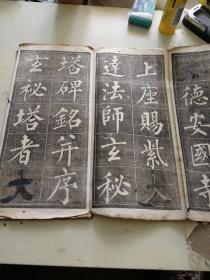 德安國寺
上座賜紫大
達法師玄秘
塔碑銘并序
玄秘塔者大